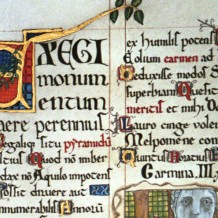 EXEGI
monum
entum
aere perennius
Regaliq situ pyramidū
Quod nō imber
edax nō Aquilo impotens
possit diruere aut
innumerabilis Annorū
ex humilis potens
Eolium carmen ad
deduxisse modos
Superbiam
meritis et mihi
Lauro cinge volen
Melpomene com
Quintus Horatius
Carmina.III.